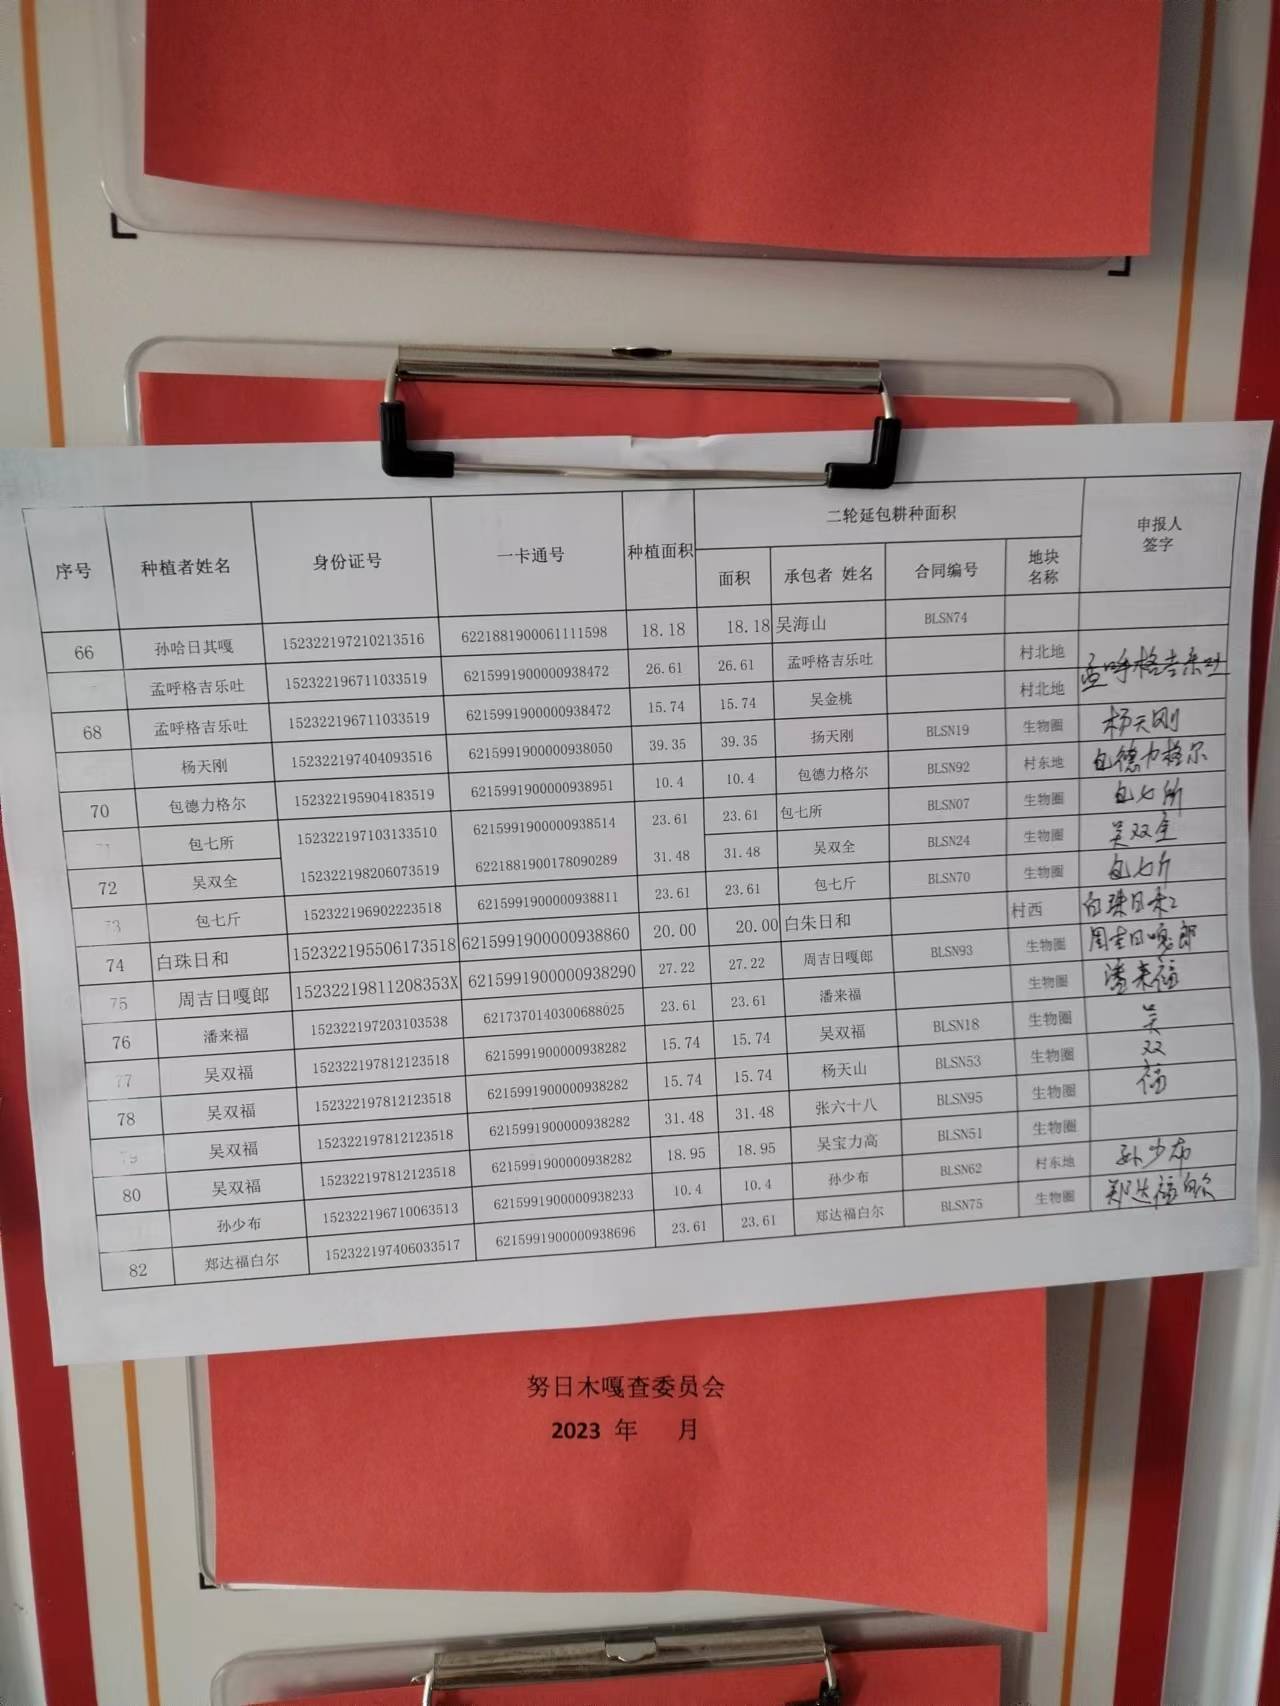 序号 种植者姓名 身份证号 一卡通号 种植面积 二轮延包耕种面积 申报人签字
面积 承包者 姓名 合同编号 地块名称
66 孙哈日其嘎 152322197210213516 6221881900061111598 18.18 18.18 吴海山 BLSN74
孟呼格吉乐吐 152322196711033519 6215991900000938472 26.61 26.61 孟呼格吉乐吐 村北地 孟呼格吉乐吐
68 孟呼格吉乐吐 152322196711033519 6215991900000938472 15.74 15.74 吴金桃 村北地
杨天刚 152322197404093516 6215991900000938050 39.35 39.35 扬天刚 BLSN19 生物圈 杨天刚
70 包德力格尔 152322195904183519 6215991900000938951 10.4 10.4 包德力格尔 BLSN92 村东地 包德力格尔
71 包七所 152322197103133510 6215991900000938514 23.61 23.61 包七所 BLSN07 生物圈 包七所
72 吴双全 152322198206073519 6221881900178090289 31.48 31.48 吴双全 BLSN24 生物圈 吴双全
73 包七斤 152322196902223518 6215991900000938811 23.61 23.61 包七斤 BLSN70 生物圈 包七斤
74 白珠日和 152322195506173518 6215991900000938860 20.00 20.00 白朱日和 村西 白珠日和
75 周吉日嘎郎 15232219811208353X 6215991900000938290 27.22 27.22 周吉日嘎郎 BLSN93 生物圈 周吉日嘎郎
76 潘来福 152322197203103538 6217370140300688025 23.61 23.61 潘来福 生物圈 潘来福
77 吴双福 152322197812123518 6215991900000938282 15.74 15.74 吴双福 BLSN18 生物圈 吴
78 吴双福 152322197812123518 6215991900000938282 15.74 15.74 杨天山 BLSN53 生物圈 双
79 吴双福 152322197812123518 6215991900000938282 31.48 31.48 张六十八 BLSN95 生物圈 福
80 吴双福 152322197812123518 6215991900000938282 18.95 18.95 吴宝力高 BLSN51 生物圈
孙少布 152322196710063513 6215991900000938233 10.4 10.4 孙少布 BLSN62 村东地 孙少布
82 郑达福白尔 152322197406033517 6215991900000938696 23.61 23.61 郑达福白尔 BLSN75 生物圈 郑达福白尔
努日木嘎查委员会
2023 年 月